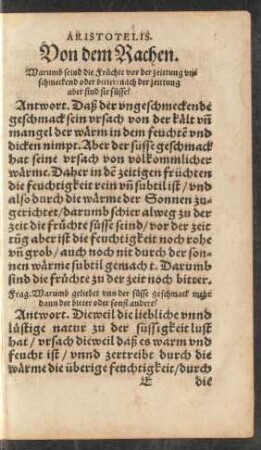 ARISTOTELIS.
Von dem Rachen.
Warumb seind die Früchte vor der zeittung vn
schmeckend oder bitter/nach der zeittung
aber sind sie süsse?
Antwort. Daß der vngeschmeckende
geschmack sein vrsach von der kält vñ
mangel der wärm in dem feuchtē vnd
dicken nimpt. Aber der süsse geschmack
hat seine vrsach von volkommlicher
wärme. Daher in dē zeitigen früchten
die feuchtigkeit rein vñ subtil ist/ vnd
also durch die wärme der Sonnen zu-
gerichtet/darumb schier alweg zu der
zeit die früchte süsse seind/ vor der zeit
tūg aber ist die feuchtigkeit noch rohe
vñ grob/auch noch nit durch der son-
nen wärme subtil gemacht. Darumb
sind die früchte zu der zeit noch bitter.
Frag. Warumb geliebet vns der süsse geschmack mehr
dann der bitter oder sonst andere?
Antwort. Dieweil die liebliche vnnd
lüstige natur zu der süssigkeit lust
hat/ vrsach dieweil daß es warm vnd
feucht ist/ vnnd zertreibt durch die
wärme die überige feuchtigkeit/durch
E die